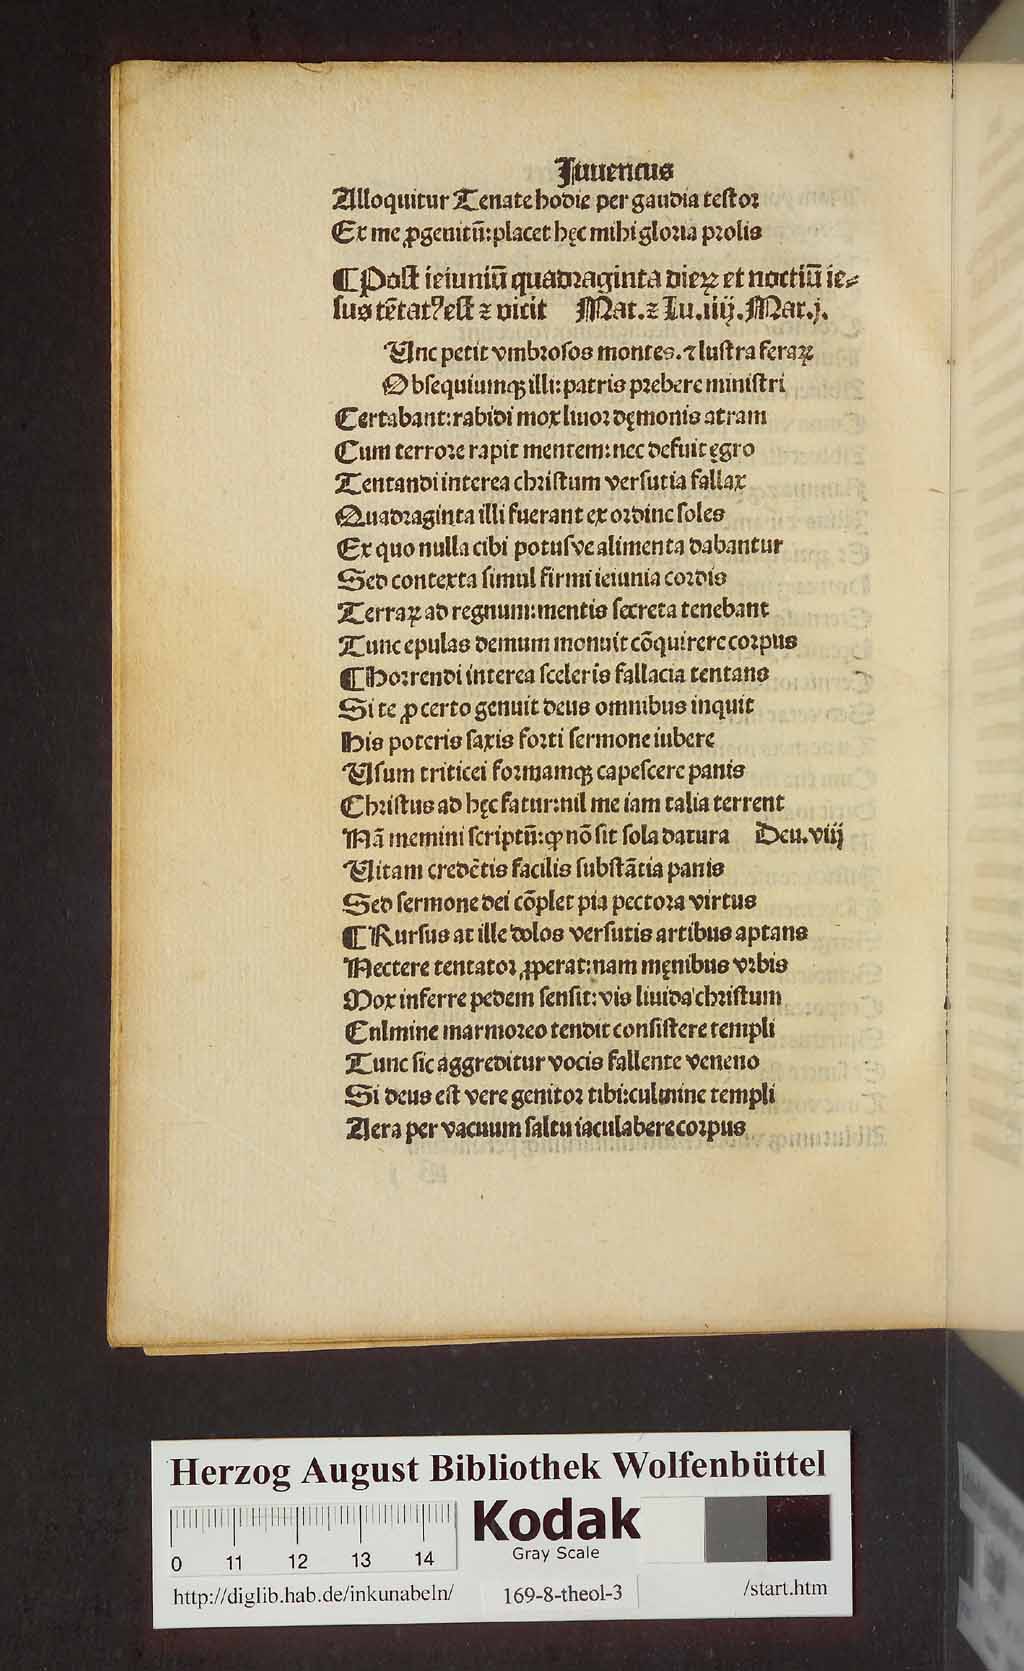 Juuencus
Alloquitur Te nate hodie per gaudia testor
Ex me ꝓgenitū: placet hęc mihi gloria prolis
¶ Post ieiuniū quadraginta dieꝝ et noctiū ie⸗
sus tētatꝰ est ⁊ vicit Mat. ⁊ Lu. iiij. Mar. j.
Unc petit vmbrosos montes. ⁊ lustra feraꝝ
Obsequiumqꝫ illi: patris prebere ministri
Certabant: rabidi mox liuor dęmonis atram
Cum terrore rapit mentem: nec defuit ęgro
Tentandi interea christum versutia fallax
Quadraginta illi fuerant ex ordine soles
Ex quo nulla cibi potusve alimenta dabantur
Sed contexta simul firmi ieiunia cordis
Terraꝝ ad regnum: mentis secreta tenebant
Tunc epulas demum monuit cōquirere corpus
¶ Horrendi interea sceleris fallacia tentans
Si te ꝓ certo genuit deus omnibus inquit
His poteris saxis forti sermone iubere
Usum triticei formamqꝫ capescere panis
Christus ad hęc fatur: nil me iam talia terrent
Nā memini scriptū: ꝙ nō sit sola datura Deu. viij
Uitam credētis facilis substātia panis
Sed sermone dei cōplet pia pectora virtus
¶ Rursus at ille dolos versutis artibus aptans
Nectere tentator ꝓperat: nam męnibus vrbis
Mox inferre pedem sensit: vis liuida christum
Cnlmine marmoreo tendit consistere templi
Tunc sic aggreditur vocis fallente veneno
Si deus est vere genitor tibi: culmine templi
Aera per vacuum saltu iaculabere corpus
Herzog August Bibliothek Wolfenbüttel
0 11 12 13 14
Kodak
Gray Scale
http://diglib.hab.de/inkunabeln/ 169-8-theol-3 /start.htm